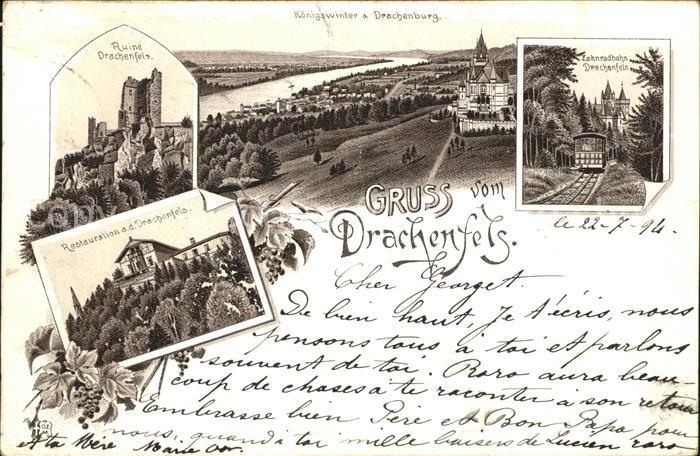 Königswinter & Drachenburg.
Ruine
Drachenfels.
Zahnradbahn
Drachenfels
Restauration a.d. Drachenfels.
GRUSS vom
Drachenfels.
le 22-7-94.
Cher Georget.
De bien haut, Je t'écris, nous
pensons tous à toi et parlons
souvent de toi. Raro aura beau-
coup de choses à te raconter à son retour
Embrasse bien Père et Bon Papa pour
nous, quand à toi mille baisers de Lucien raro
et ta Mère Marie